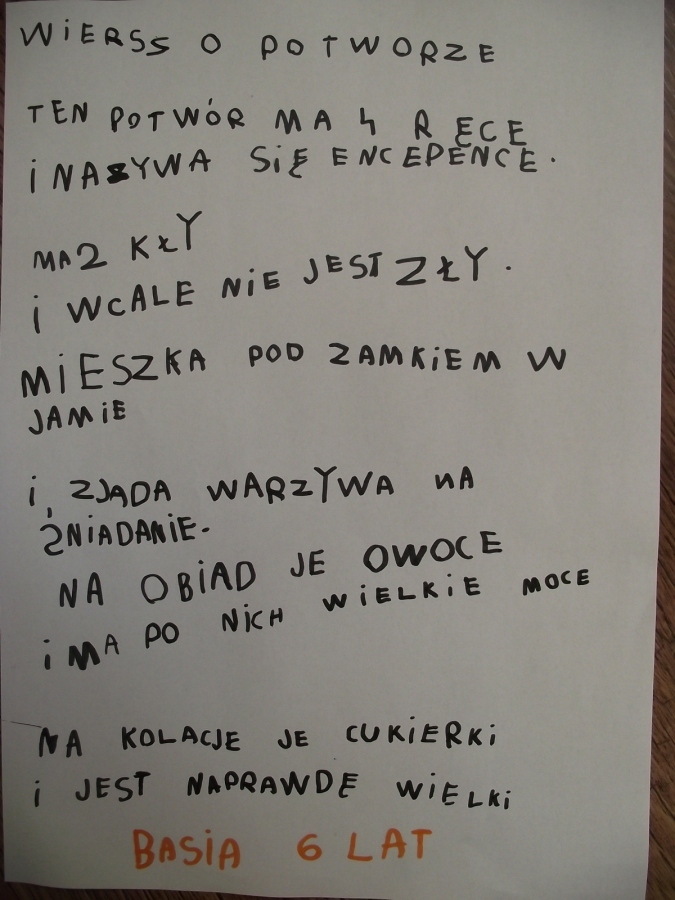 WiERSS O POTWORZE
TEN POTWÓR MA 4 RĘCE
i NAZYWA SiĘ ENCEPENCE.
MA 2 KŁY
i WCALE NiE JEST ZŁY.
MiESZKA POD ZAMKiEM W
JAMiE
i, ZJADA WARZYWA NA
ŚNiADANiE.
NA OBiAD JE OWOCE
i MA PO NiCH WiELKiE MOCE
NA KOLACJE JE CUKiERKi
i JEST NAPRAWDE WiELKi
BASiA 6 LAT